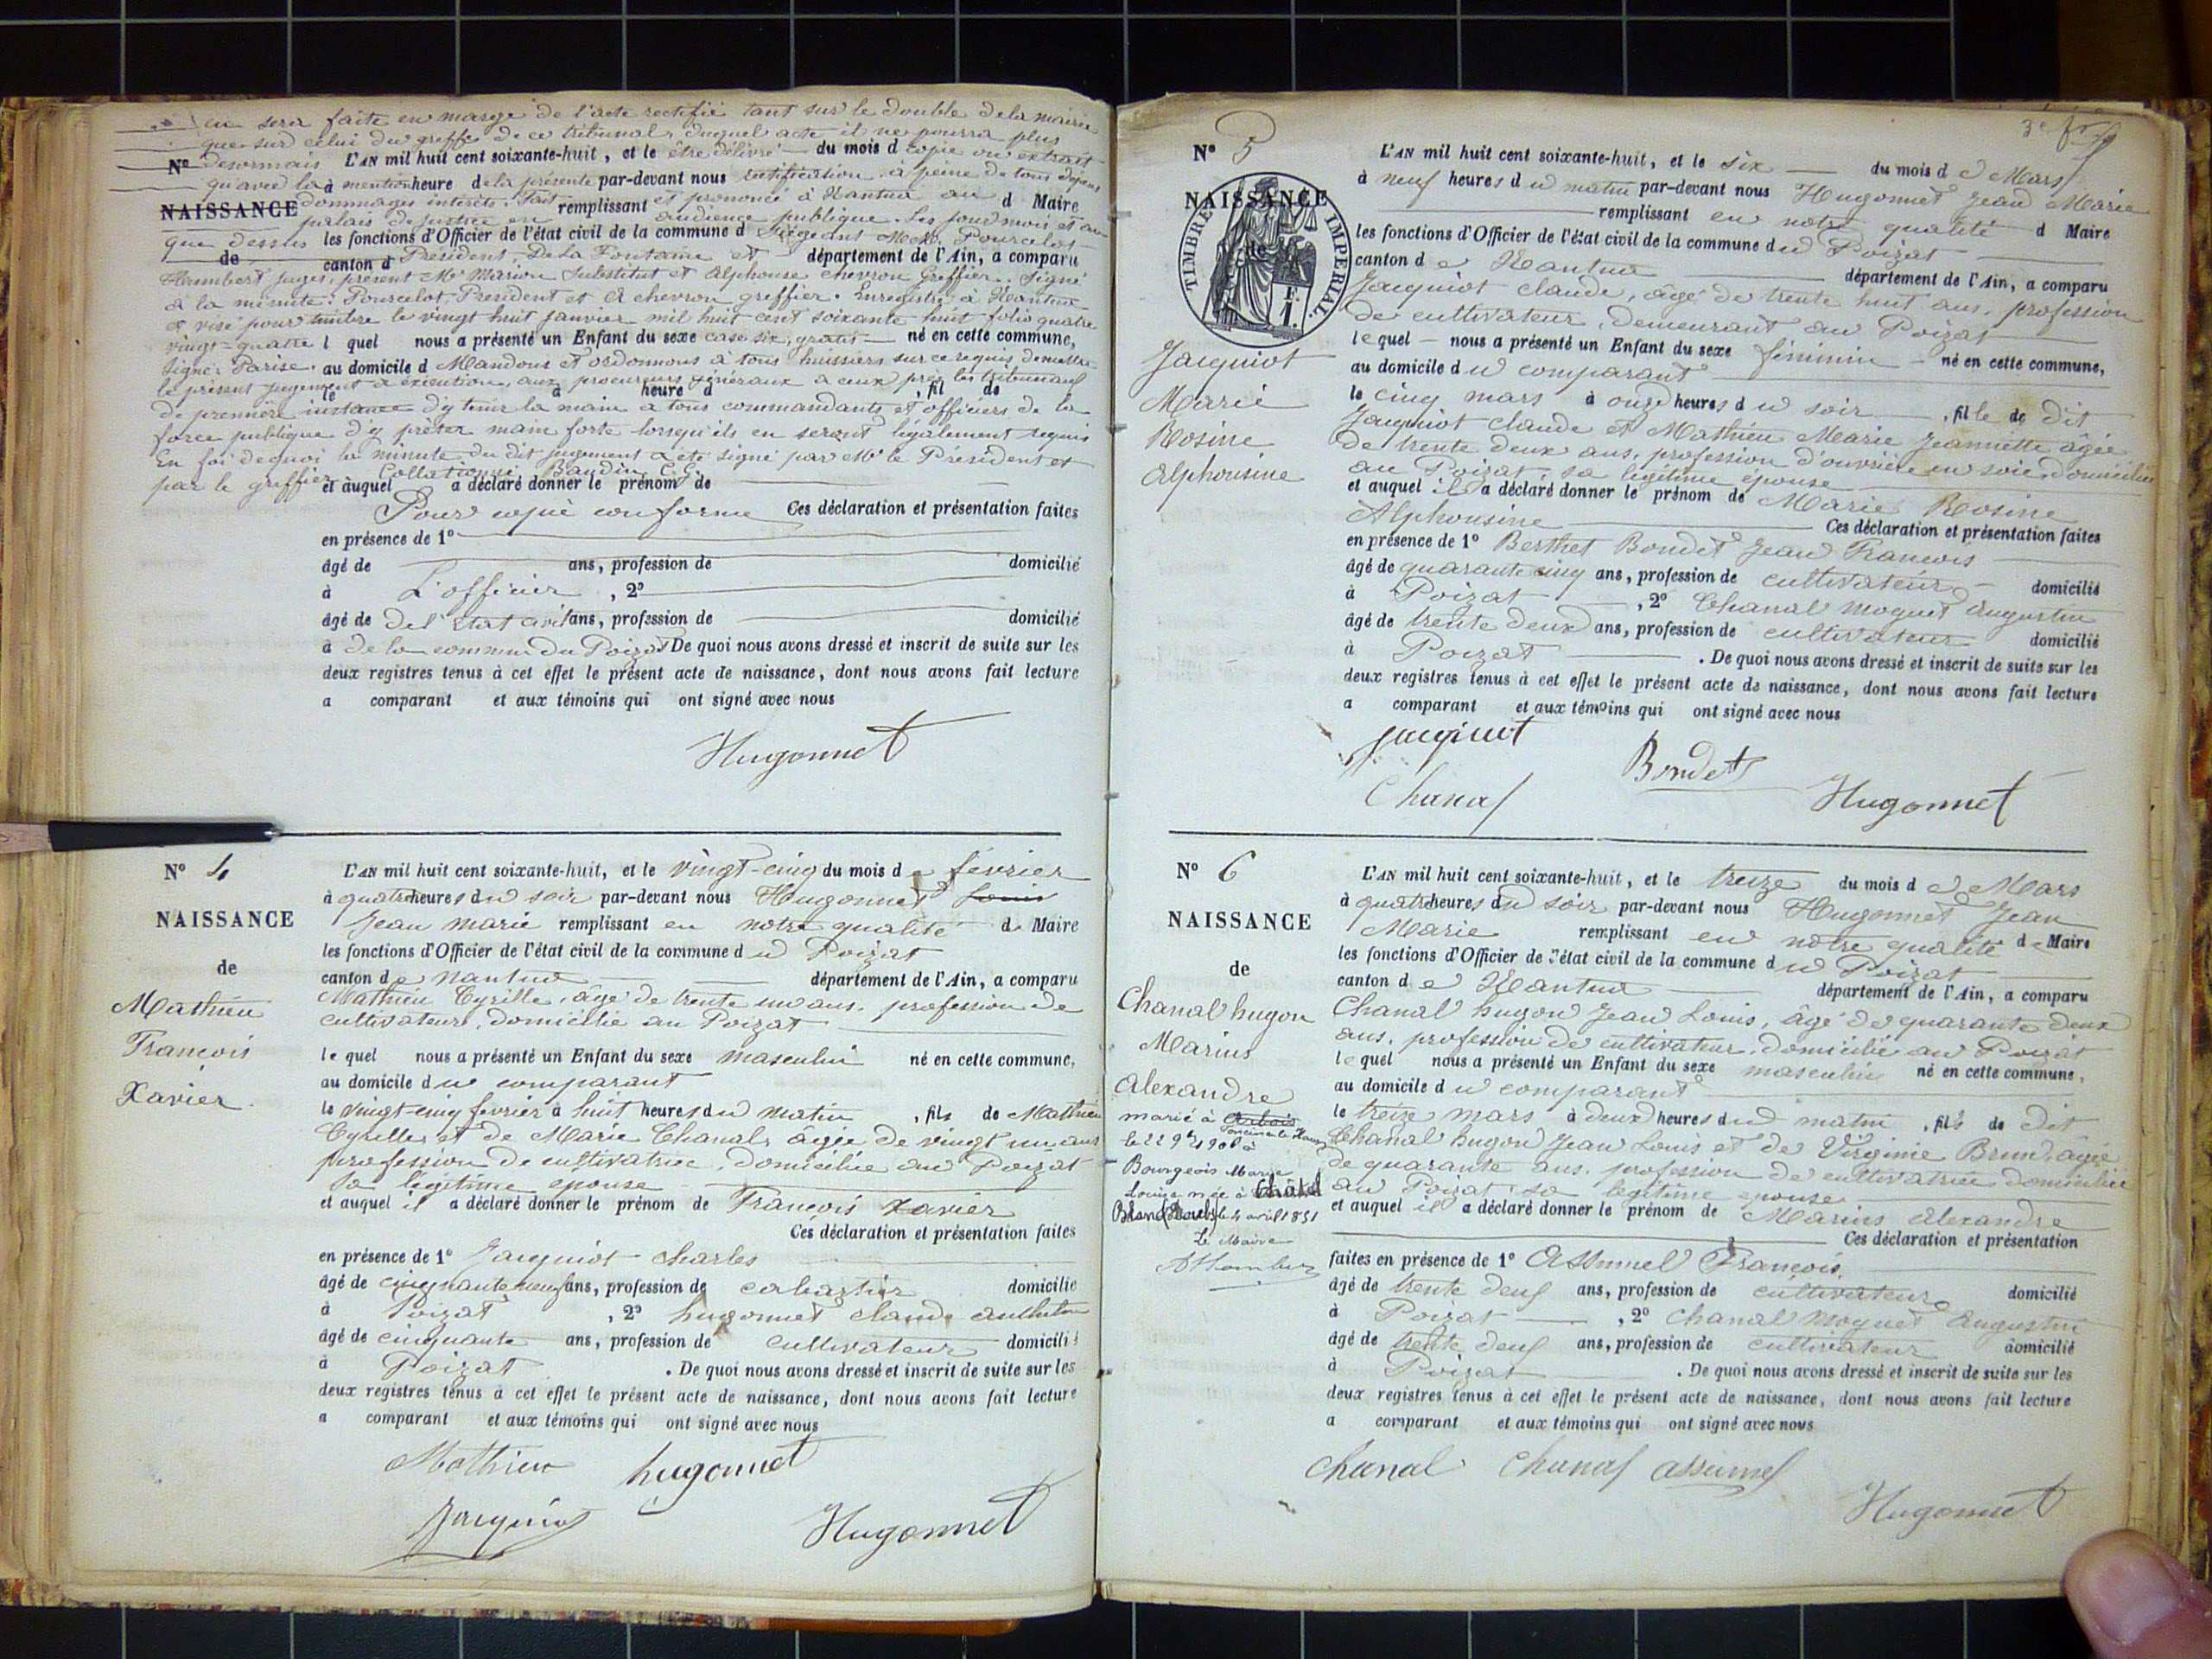 en sera faite en marge de l'acte rectifié tant sur le double de la mairie
que sur celui du greffe de ce tribunal, duquel acte il ne pourra plus
N° désormais L'AN mil huit cent soixante-huit, et le être délivré du mois d copie ou extrait
qu'avec la à mention heure de la présente par-devant nous rectification à peine de tous dépens
NAISSANCE dommages intérêts. Fait remplissant et prononcé à Nantua au d Maire
palais de justice en audience publique. Les jour mois et an
que dessus les fonctions d'Officier de l'état civil de la commune d Siégeant Pourcelot
de canton d Président, De La Fontaine et département de l'Ain, a comparu
Humbert juges, présent Mr Marion Substitut et Alphonse Chevron Greffier. Signé
à la minute: Pourcelot, Président et A chevron greffier. Enregistré à Nantua
et visé pour timbre le vingt huit janvier mil huit cent soixante huit folio quatre
vingt-quatre l quel nous a présenté un Enfant du sexe case six, gratis né en cette commune,
Signé: Parise. au domicile d Mandons et ordonnons à tous huissiers sur ce requis de mettre
le présent jugement à exécution, aux procureurs généraux à ceux près les tribunaux
le à heure d , fil de
de première instance d'y tenir la main à tous commandants et officiers de la
force publique d'y prêter main forte lorsqu'ils en seront légalement requis
En foi de quoi la minute du dit jugement a été signé par Mr le Président et
par le greffier Collationné Baudin C. G.
et auquel a déclaré donner le prénom de
Pour copie conforme Ces déclaration et présentation faites
en présence de 1°
âgé de ans, profession de domicilié
à L'officier , 2°
âgé de de l'état civil ans, profession de domicilié
à de la commune du Poizat De quoi nous avons dressé et inscrit de suite sur les
deux registres tenus à cet effet le présent acte de naissance, dont nous avons fait lecture
a comparant et aux témoins qui ont signé avec nous
Hugonnet
N° 4
NAISSANCE
de
Mathieu
François
Xavier.
L'AN mil huit cent soixante-huit, et le vingt-cinq du mois de février
à quatre heures du soir par-devant nous Hugonnet Louis
Jean Marie remplissant en notre qualité de Maire
les fonctions d'Officier de l'état civil de la commune du Poizat
canton de Nantua département de l'Ain, a comparu
Mathieu Cyrille, âgé de trente un ans, profession de
cultivateur, domicilié au Poizat
le quel nous a présenté un Enfant du sexe masculin né en cette commune,
au domicile du comparant
le vingt-cinq février à huit heures du matin , fils de Mathieu
Cyrille et de Marie Chanal, âgée de vingt un ans
profession de cultivatrice, domiciliée au Poizat
sa légitime épouse
et auquel il a déclaré donner le prénom de François Xavier
Ces déclaration et présentation faites
en présence de 1° Jacquiot Charles
âgé de cinquante neuf ans, profession de cabartier domicilié
à Poizat , 2° hugonnet claude
âgé de cinquante ans, profession de cultivateur domicilié
à Poizat . De quoi nous avons dressé et inscrit de suite sur les
deux registres tenus à cet effet le présent acte de naissance, dont nous avons fait lecture
a comparant et aux témoins qui ont signé avec nous
Mathieu hugonnet
Jacquiot Hugonnet
N° 5
NAISSANCE
de
TIMBRE IMPÉRIAL
1 F.
Jacquiot
Marie
Rosine
Alphonsine
L'AN mil huit cent soixante-huit, et le six du mois de Mars
à neuf heures du matin par-devant nous Hugonnet Jean Marie
remplissant en notre qualité d Maire
les fonctions d'Officier de l'état civil de la commune du Poizat
canton de Nantua département de l'Ain, a comparu
Jacquiot claude, âgé de trente huit ans, profession
de cultivateur, demeurant au Poizat
le quel nous a présenté un Enfant du sexe féminin né en cette commune,
au domicile du comparant
le cinq mars à onze heures du soir , fille de dit
Jacquiot claude et Mathieu Marie Jeannette âgée
de trente deux ans, profession d'ouvrière en soie, domiciliée
au Poizat, sa légitime épouse
et auquel il a déclaré donner le prénom de Marie Rosine
Alphonsine Ces déclaration et présentation faites
en présence de 1° Berthet Bondet Jean François
âgé de quarante cinq ans, profession de cultivateur domicilié
à Poizat , 2° Chanal moguet augustin
âgé de trente deux ans, profession de cultivateur domicilié
à Poizat . De quoi nous avons dressé et inscrit de suite sur les
deux registres tenus à cet effet le présent acte de naissance, dont nous avons fait lecture
a comparant et aux témoins qui ont signé avec nous
Jacquiot Bondet
Chanal Hugonnet
N° 6
NAISSANCE
de
Chanal hugon
Marius
Alexandre
marié à
le 22 9bre 1908 à
Bourgeois Marie
Louise née à
le 4 avril 1851
Le Maire
L'AN mil huit cent soixante-huit, et le treize du mois de Mars
à quatre heures du soir par-devant nous Hugonnet Jean
Marie remplissant en notre qualité de Maire
les fonctions d'Officier de l'état civil de la commune du Poizat
canton de Nantua département de l'Ain, a comparu
Chanal hugon Jean Louis, âgé de quarante deux
ans, profession de cultivateur, domicilié au Poizat
le quel nous a présenté un Enfant du sexe masculin né en cette commune,
au domicile du comparant
le treize mars à deux heures du matin , fils de dit
Chanal hugon Jean Louis et de Virginie Brun, âgée
de quarante ans, profession de cultivatrice domiciliée
au Poizat, sa légitime épouse
et auquel il a déclaré donner le prénom de Marius Alexandre
Ces déclaration et présentation
faites en présence de 1° Assumel François
âgé de trente deuf ans, profession de cultivateur domicilié
à Poizat , 2° Chanal moguet Augustin
âgé de trente deuf ans, profession de cultivateur domicilié
à Poizat . De quoi nous avons dressé et inscrit de suite sur les
deux registres tenus à cet effet le présent acte de naissance, dont nous avons fait lecture
a comparant et aux témoins qui ont signé avec nous
Chanal Chanal assumel
Hugonnet